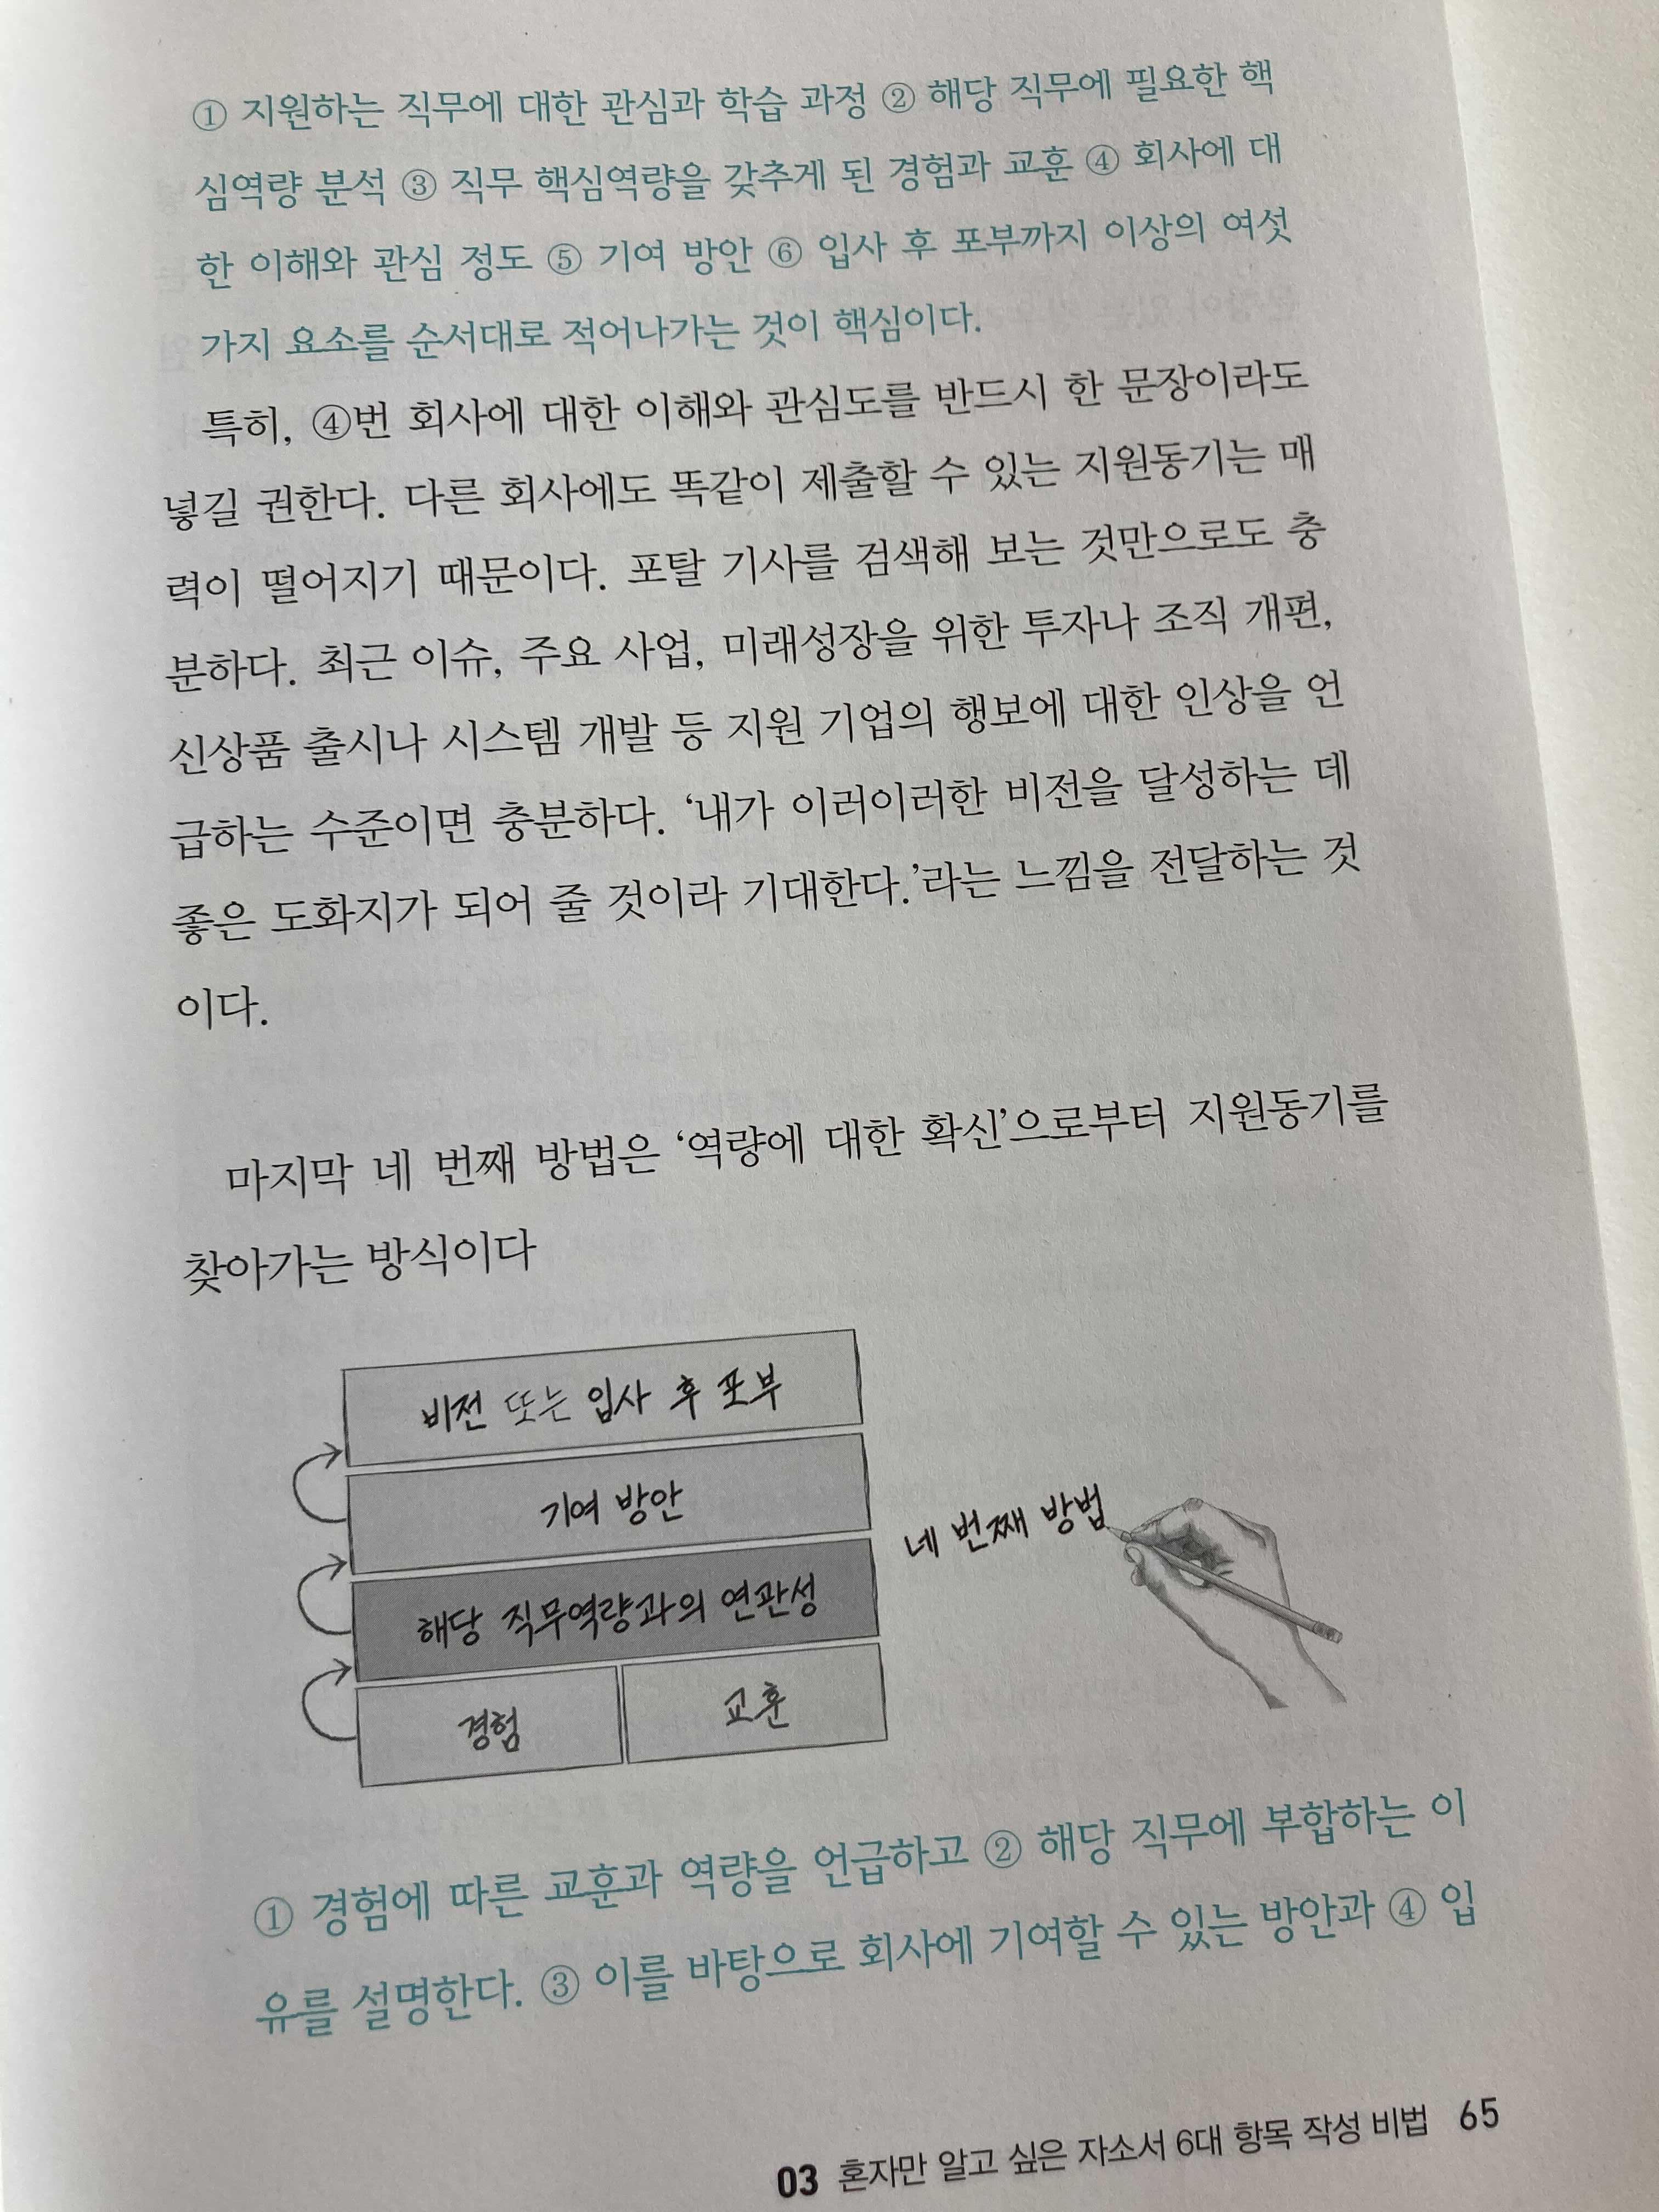 ① 지원하는 직무에 대한 관심과 학습 과정 ② 해당 직무에 필요한 핵
심역량 분석 ③ 직무 핵심역량을 갖추게 된 경험과 교훈 ④ 회사에 대
한 이해와 관심 정도 ⑤ 기여 방안 ⑥ 입사 후 포부까지 이상의 여섯
가지 요소를 순서대로 적어나가는 것이 핵심이다.
특히, ④번 회사에 대한 이해와 관심도를 반드시 한 문장이라도
넣길 권한다. 다른 회사에도 똑같이 제출할 수 있는 지원동기는 매
력이 떨어지기 때문이다. 포탈 기사를 검색해 보는 것만으로도 충
분하다. 최근 이슈, 주요 사업, 미래성장을 위한 투자나 조직 개편,
신상품 출시나 시스템 개발 등 지원 기업의 행보에 대한 인상을 언
급하는 수준이면 충분하다. ‘내가 이러이러한 비전을 달성하는 데
좋은 도화지가 되어 줄 것이라 기대한다.’라는 느낌을 전달하는 것
이다.
마지막 네 번째 방법은 ‘역량에 대한 확신’으로부터 지원동기를
찾아가는 방식이다
비전 또는 입사 후 포부
기여 방안
해당 직무역량과의 연관성
경험 교훈
네 번째 방법
① 경험에 따른 교훈과 역량을 언급하고 ② 해당 직무에 부합하는 이
유를 설명한다. ③ 이를 바탕으로 회사에 기여할 수 있는 방안과 ④ 입
03 혼자만 알고 싶은 자소서 6대 항목 작성 비법 65